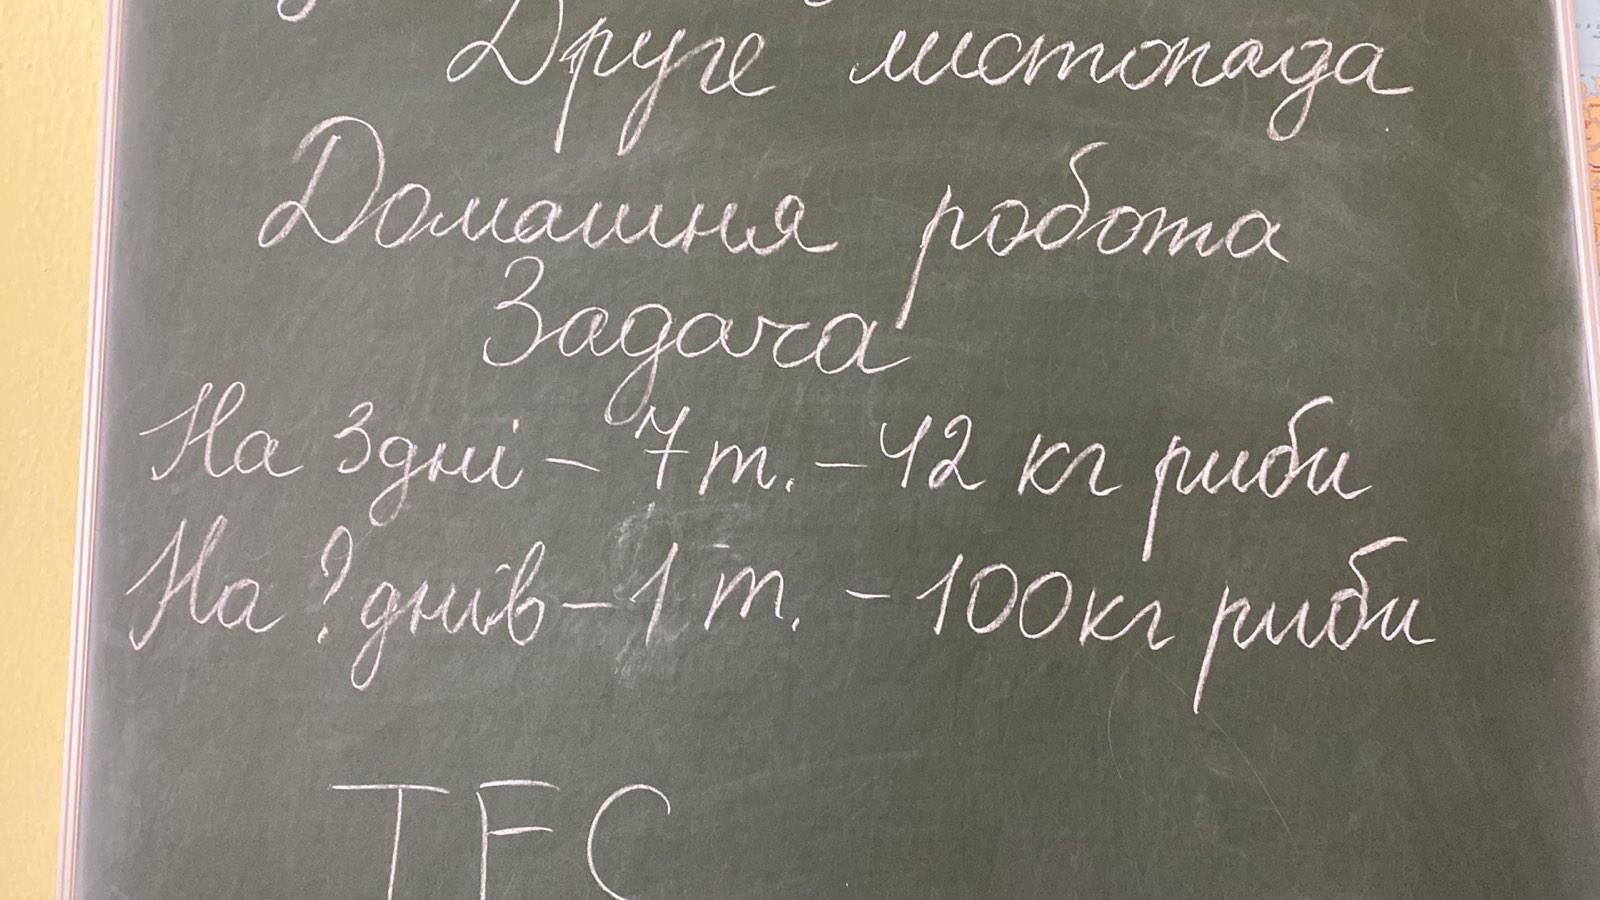 Друге листопада
Домашня робота
Задача
На 3 дні – 7 т. – 42 кг риби
На ? днів – 1 т. – 100 кг риби